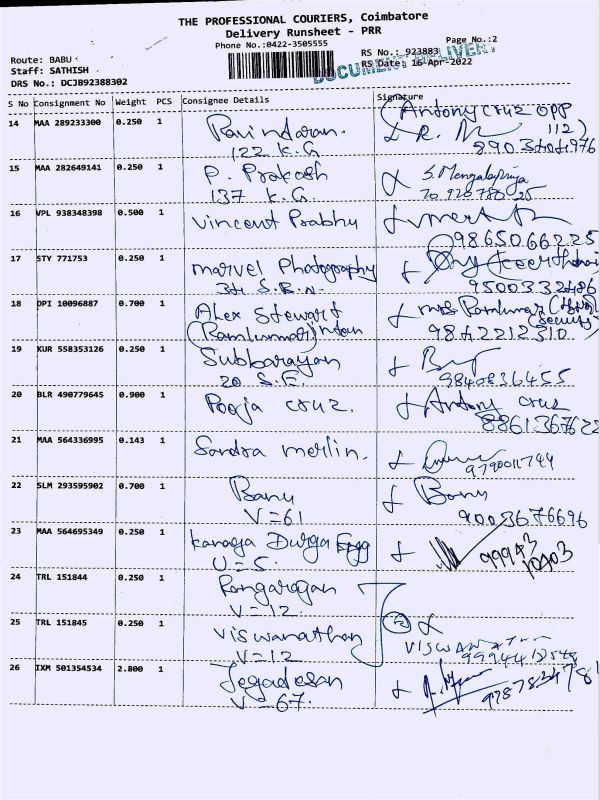 THE PROFESSIONAL COURIERS, Coimbatore
Delivery Runsheet - PRR
Phone No.:0422-3505555
Page No.:2
Route: BABU
RS No.: 923883
Staff: SATHISH
RS Date: 16-Apr-2022
DRS No.: DCJB92388302
DOCUMENT DELIVERY
S No Consignment No Weight PCS Consignee Details Signature
14 MAA 289233300 0.250 1 Ravindaran. (Antony cruz opp
122 K.G 112)
15 MAA 282649141 0.250 1 P. Prakash
137 K.G.
16 VPL 938348398 0.500 1 Vincent Prabhu
9865066225
17 STY 771753 0.250 1 Marvel Photography
34 S.B.N. 9500332486
18 DPI 10096887 0.700 1 Alex Stewart
(Ramkumar) 9842212310
19 KUR 558353126 0.250 1 Subbarayan
20 S.E. 9840836455
20 BLR 490779645 0.900 1 Pooja cruz. Antony cruz
8861367622
21 MAA 564336995 0.143 1 Sandra merlin.
9790011744
22 SLM 293595902 0.700 1 Banu Banu
V=61 9003676696
23 MAA 564695349 0.250 1 Kanaga Durga Egg 99943
U=5. 10403
24 TRL 151844 0.250 1 Rangarajan
V=12.
25 TRL 151845 0.250 1 Viswanathan
V=12
26 IXM 501354534 2.800 1 Jegadesan
V=67.